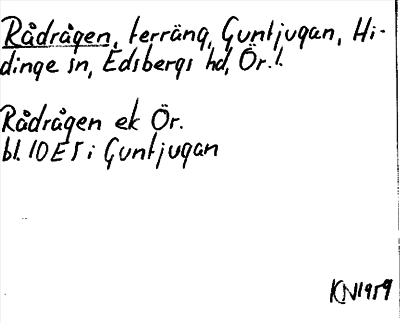 Rådrågen, terräng, Guntjugan, Hi-
dinge sn, Edsbergs hd, Ör. l.
Rådrågen ek Ör.
bl. 10 E 5 i Guntjugan
KN 1959